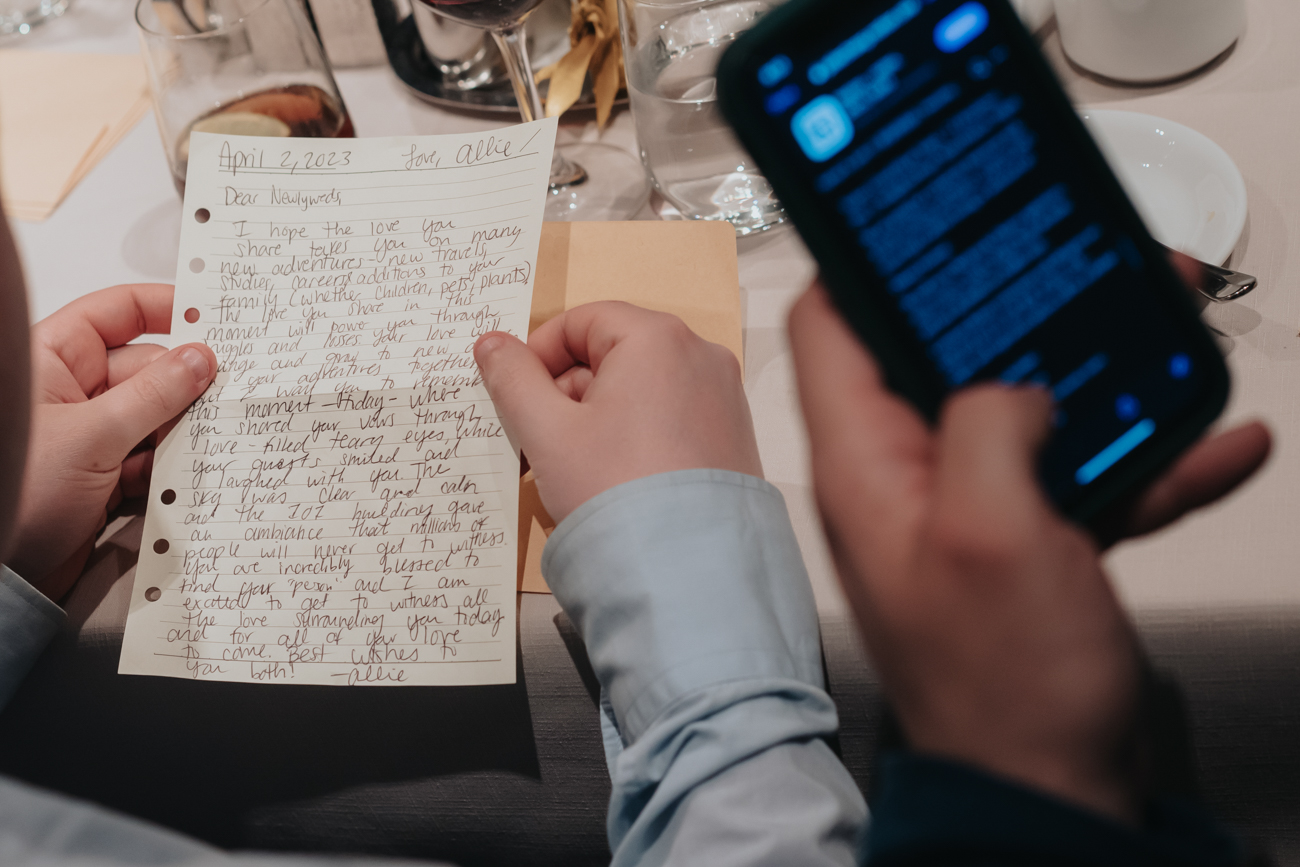 April 2, 2023 Love, Allie!
Dear Newlyweds,
I hope the love you
share takes you on many
new adventures - new travels,
studies, careers, additions to your
family (whether children, pets, plants)
The love you share in this
moment will power you through
uggles and losses your love will
ange and gray to new
your adventures together
but I want you to remember
this moment - today - where
you shared your vows through
love-filled teary eyes, while
your guests smiled and
laughed with you. The
sky was clear and calm
and the 101 building gave
an ambiance that millions of
people will never get to witness.
You are incredibly blessed to
find your "person" and I am
excited to get to witness all
the love surrounding you today
and for all of your love
to come. Best wishes to
you both! -Allie